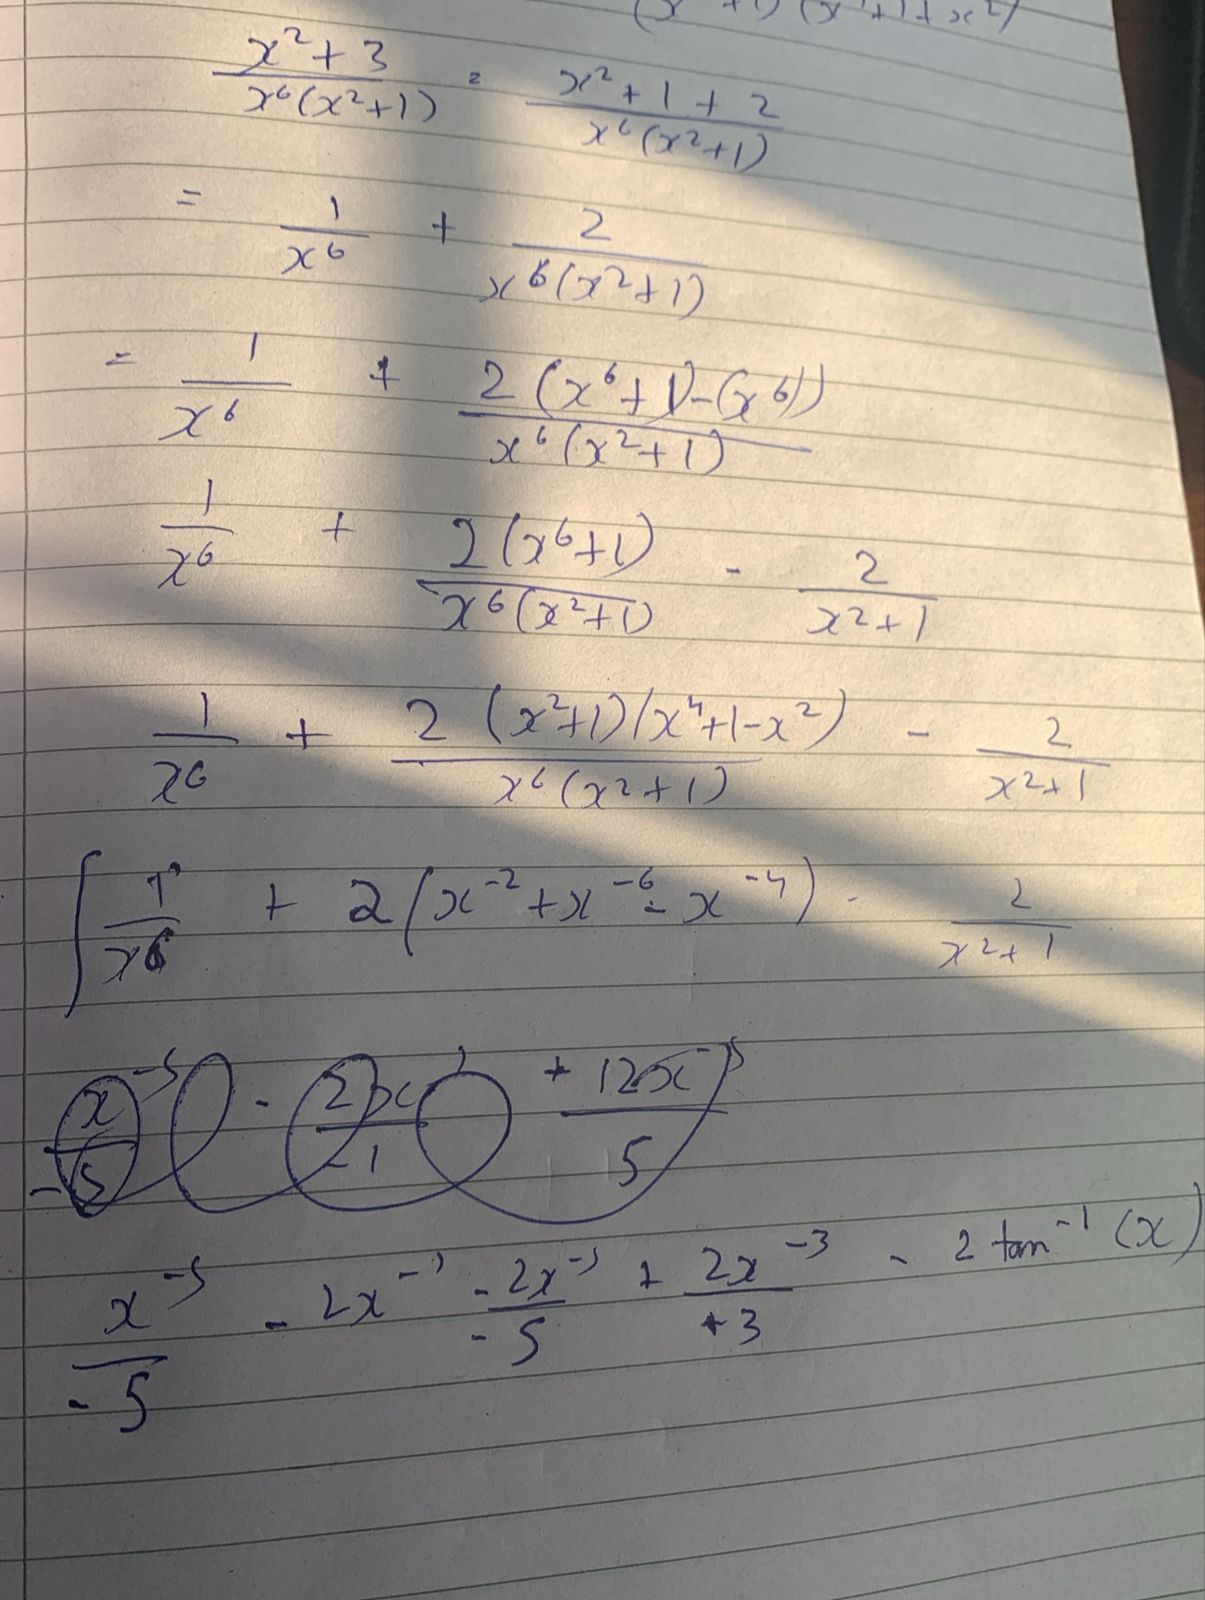 (x² +1) (x⁴+1+x²)
x²+3 / x⁶(x²+1) = x²+1+2 / x⁶(x²+1)
= 1/x⁶ + 2 / x⁶(x²+1)
= 1/x⁶ + 2(x⁶+1)-(x⁶)) / x⁶(x²+1)
1/x⁶ + 2(x⁶+1) / x⁶(x²+1) - 2 / x²+1
1/x⁶ + 2(x²+1)(x⁴+1-x²) / x⁶(x²+1) - 2 / x²+1
∫ 1/x⁶ + 2(x⁻²+x⁻⁶-x⁻⁴) - 2 / x²+1
x⁻⁵/-5 - 2x⁻¹/-1 + 12x⁻⁵/5
x⁻⁵/-5 - 2x⁻¹ -2x⁻⁵/-5 + 2x⁻³/+3 - 2 tan⁻¹(x)